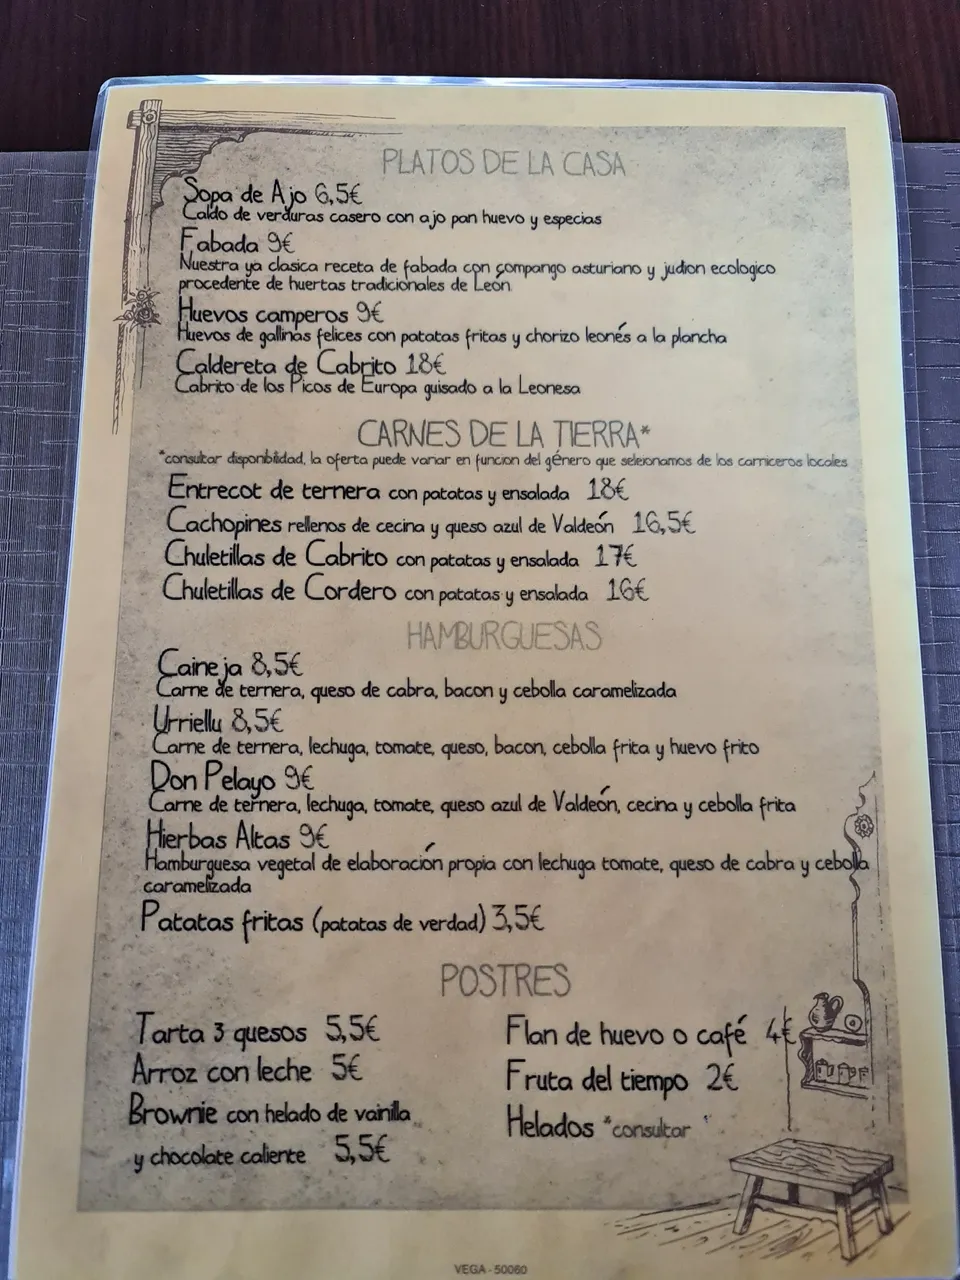 PLATOS DE LA CASA
Sopa de Ajo 6,5€
Caldo de verduras casero con ajo pan huevo y especias
Fabada 9€
Nuestra ya clasica receta de fabada con compango asturiano y judion ecologico
procedente de huertas tradicionales de León
Huevos camperos 9€
Huevos de gallinas felices con patatas fritas y chorizo leonés a la plancha
Caldereta de Cabrito 18€
Cabrito de los Picos de Europa guisado a la Leonesa
CARNES DE LA TIERRA*
*consultar disponibilidad, la oferta puede variar en funcion del género que selecionamos de los carniceros locales
Entrecot de ternera con patatas y ensalada 18€
Cachopines rellenos de cecina y queso azul de Valdeón 16,5€
Chuletillas de Cabrito con patatas y ensalada 17€
Chuletillas de Cordero con patatas y ensalada 16€
HAMBURGUESAS
Caineja 8,5€
Carne de ternera, queso de cabra, bacon y cebolla caramelizada
Urriellu 8,5€
Carne de ternera, lechuga, tomate, queso, bacon, cebolla frita y huevo frito
Don Pelayo 9€
Carne de ternera, lechuga, tomate, queso azul de Valdeón, cecina y cebolla frita
Hierbas Altas 9€
Hamburguesa vegetal de elaboración propia con lechuga tomate, queso de cabra y cebolla
caramelizada
Patatas fritas (patatas de verdad) 3,5€
POSTRES
Tarta 3 quesos 5,5€
Arroz con leche 5€
Brownie con helado de vainilla
y chocolate caliente 5,5€
Flan de huevo o café 4€
Fruta del tiempo 2€
Helados *consultar
VEGA - 50060